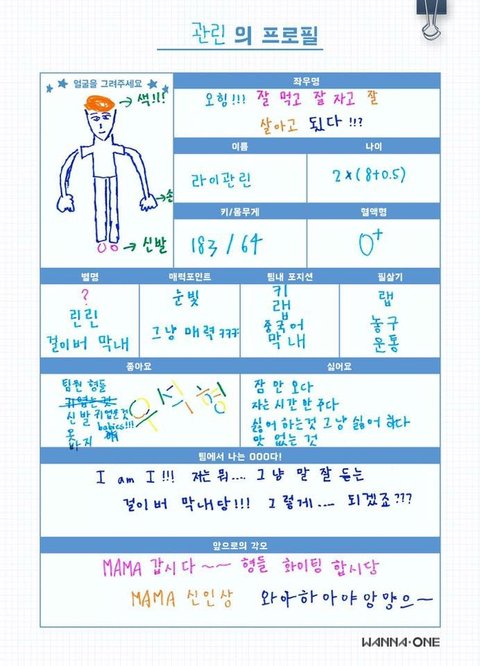 관린 의 프로필
얼굴을 그려주세요
→ 색!!!
→ 손
→ 신발
좌우명
오힘!!! 잘 먹고 잘 자고 잘
살아고 됬다!!?
이름
라이관린
나이
2×(8+0.5)
키/몸무게
183 / 64
혈액형
O+
별명
?
린린
걸이버 막내
매력포인트
눈빛
그냥 매력 ㅋㅋㅋ
팀내 포지션
키
랩
중국어
막내
필살기
랩
농구
운동
좋아요
팀원 형들
귀엽는 것
신발 귀엽은 것
babies!!!
옷
바지
우석형
싫어요
잠 안 오다
자는 시간 안 주다
싫어 하는것 그냥 싫어 하다
맛 없는 것
팀에서 나는 OOO다!
I am I!!! 저는 뭐.... 그냥 말 잘 듣는
걸이버 막내당!!! 그렇게.... 되겠죠???
앞으로의 각오
MAMA 갑시다~~ 형들 화이팅 합시당
MAMA 신인상 와아하아야앙망으~
WANNA·ONE